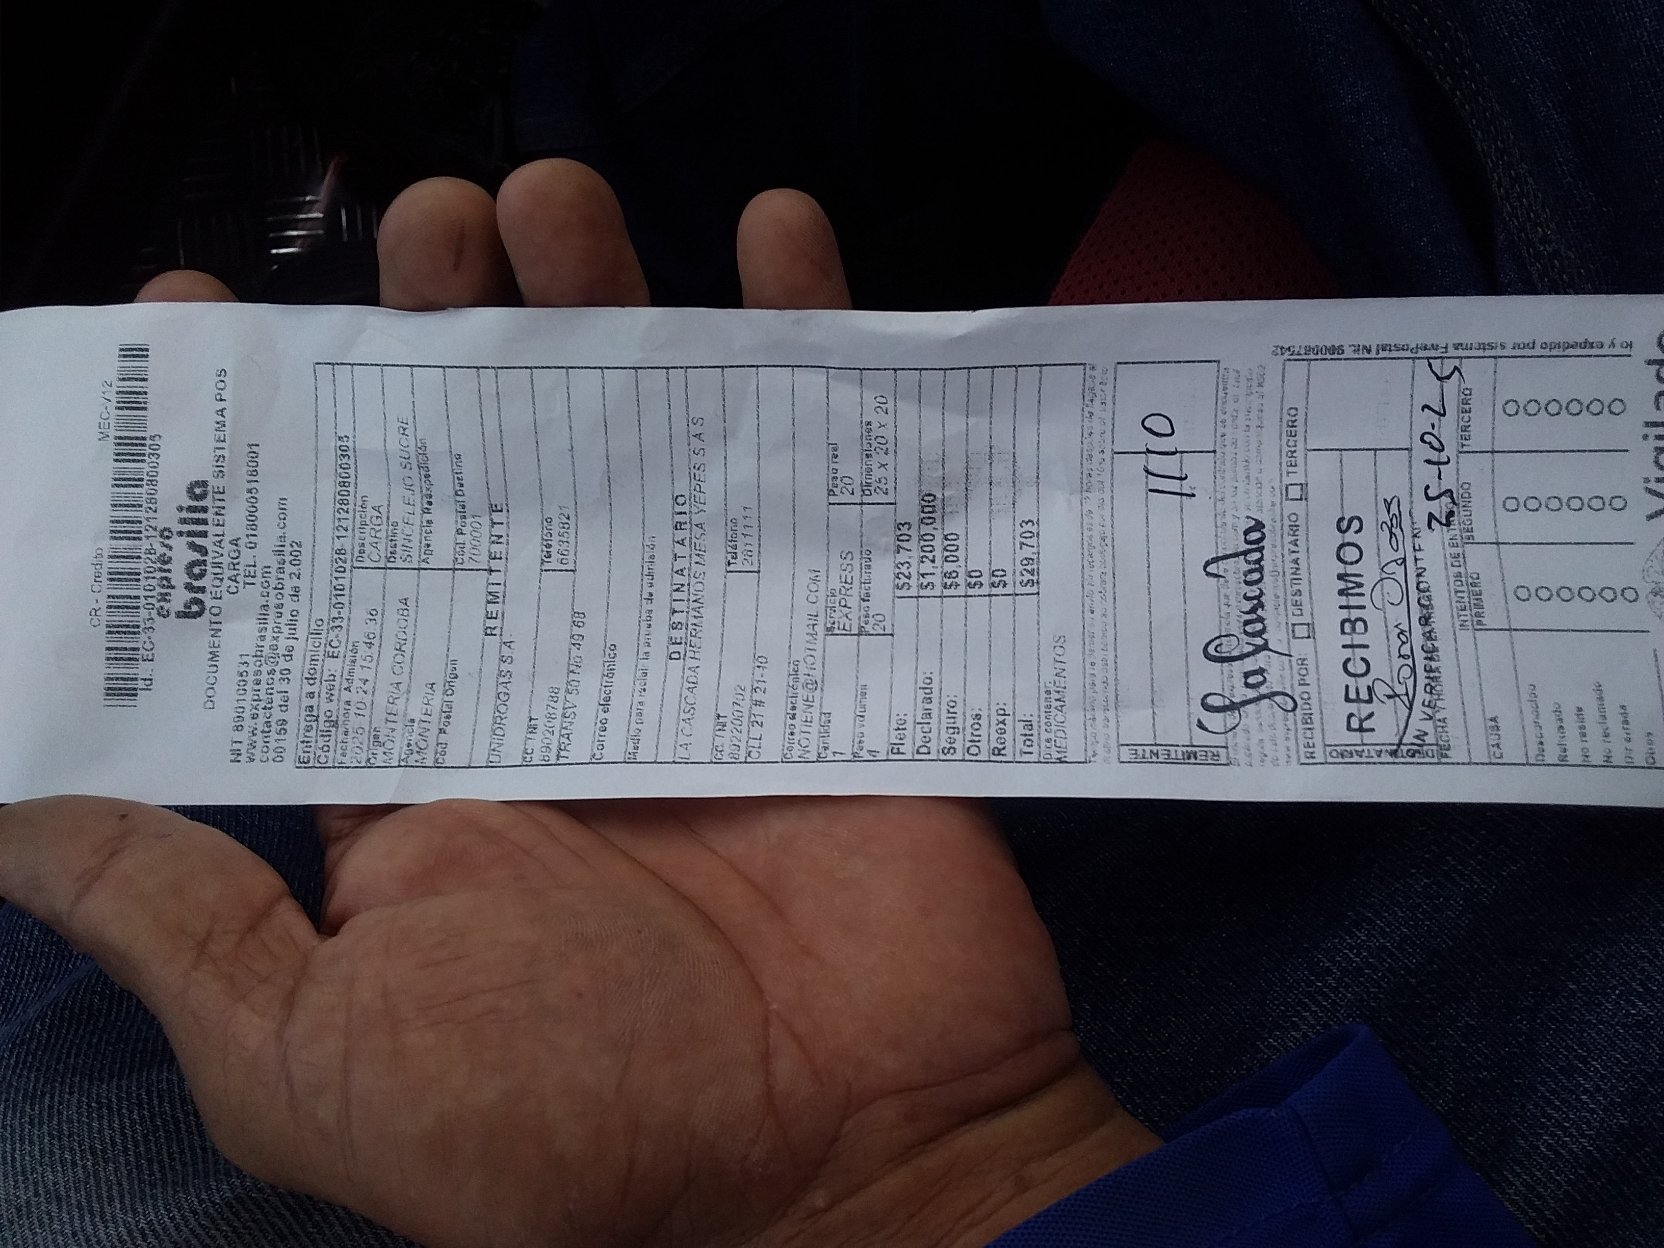 CR - Credito MEC-V12
Id.: EC-33-0101028-121280800305
expreso
brasilia
DOCUMENTO EQUIVALENTE SISTEMA POS
CARGA
NIT 890100531 TEL. 018000518001
www.expresobrasilia.com
contactenos@expresobrasilia.com
00159 del 30 de julio de 2.002
Entrega a domicilio
Código web: EC-33-0101028-121280800305
Fecha/hora Admisión Descripción
2025-10-24 15:46:36 CARGA
Origen Destino
MONTERIA CORDOBA SINCELEJO SUCRE
Agencia Agencia Reexpedición
MONTERIA
Cod Postal Origen Cod. Postal Destino
700001
REMITENTE
UNIDROGAS S.A
CC / NIT Teléfono
890208788 6635821
TRANSV 50 No 49 68
Correo electrónico
Medio para recibir la prueba de admisión
DESTINATARIO
LA CASCADA HERMANOS MESA YEPES S AS
CC / NIT Teléfono
892200702 281111
CLL 21 # 21-10
Correo electrónico
NOTIENE@HOTMAIL.COM
Cantidad Servicio Peso real
1 EXPRESS 20
Peso volumen Peso facturado Dimensiones
4 20 25 x 20 x 20
Flete: $23,703
Declarado: $1,200,000
Seguro: $6,000
Otros: $0
Reexp: $0
Total: $29,703
Dice contener:
MEDICAMENTOS
REMITENTE
11:10
La Cascada
RECIBIDO POR: DESTINATARIO TERCERO
RECIBIMOS
SIN VERIFICAR CONTENI
25-10-25
INTENTOS DE EN
PRIMERO SEGUNDO TERCERO
CAUSA
Desconocido
Rehusado
No reside
No reclamado
Dir errada
Otros
lo y expedido por sistema FarePostal Nit. 900087542
Vigilado